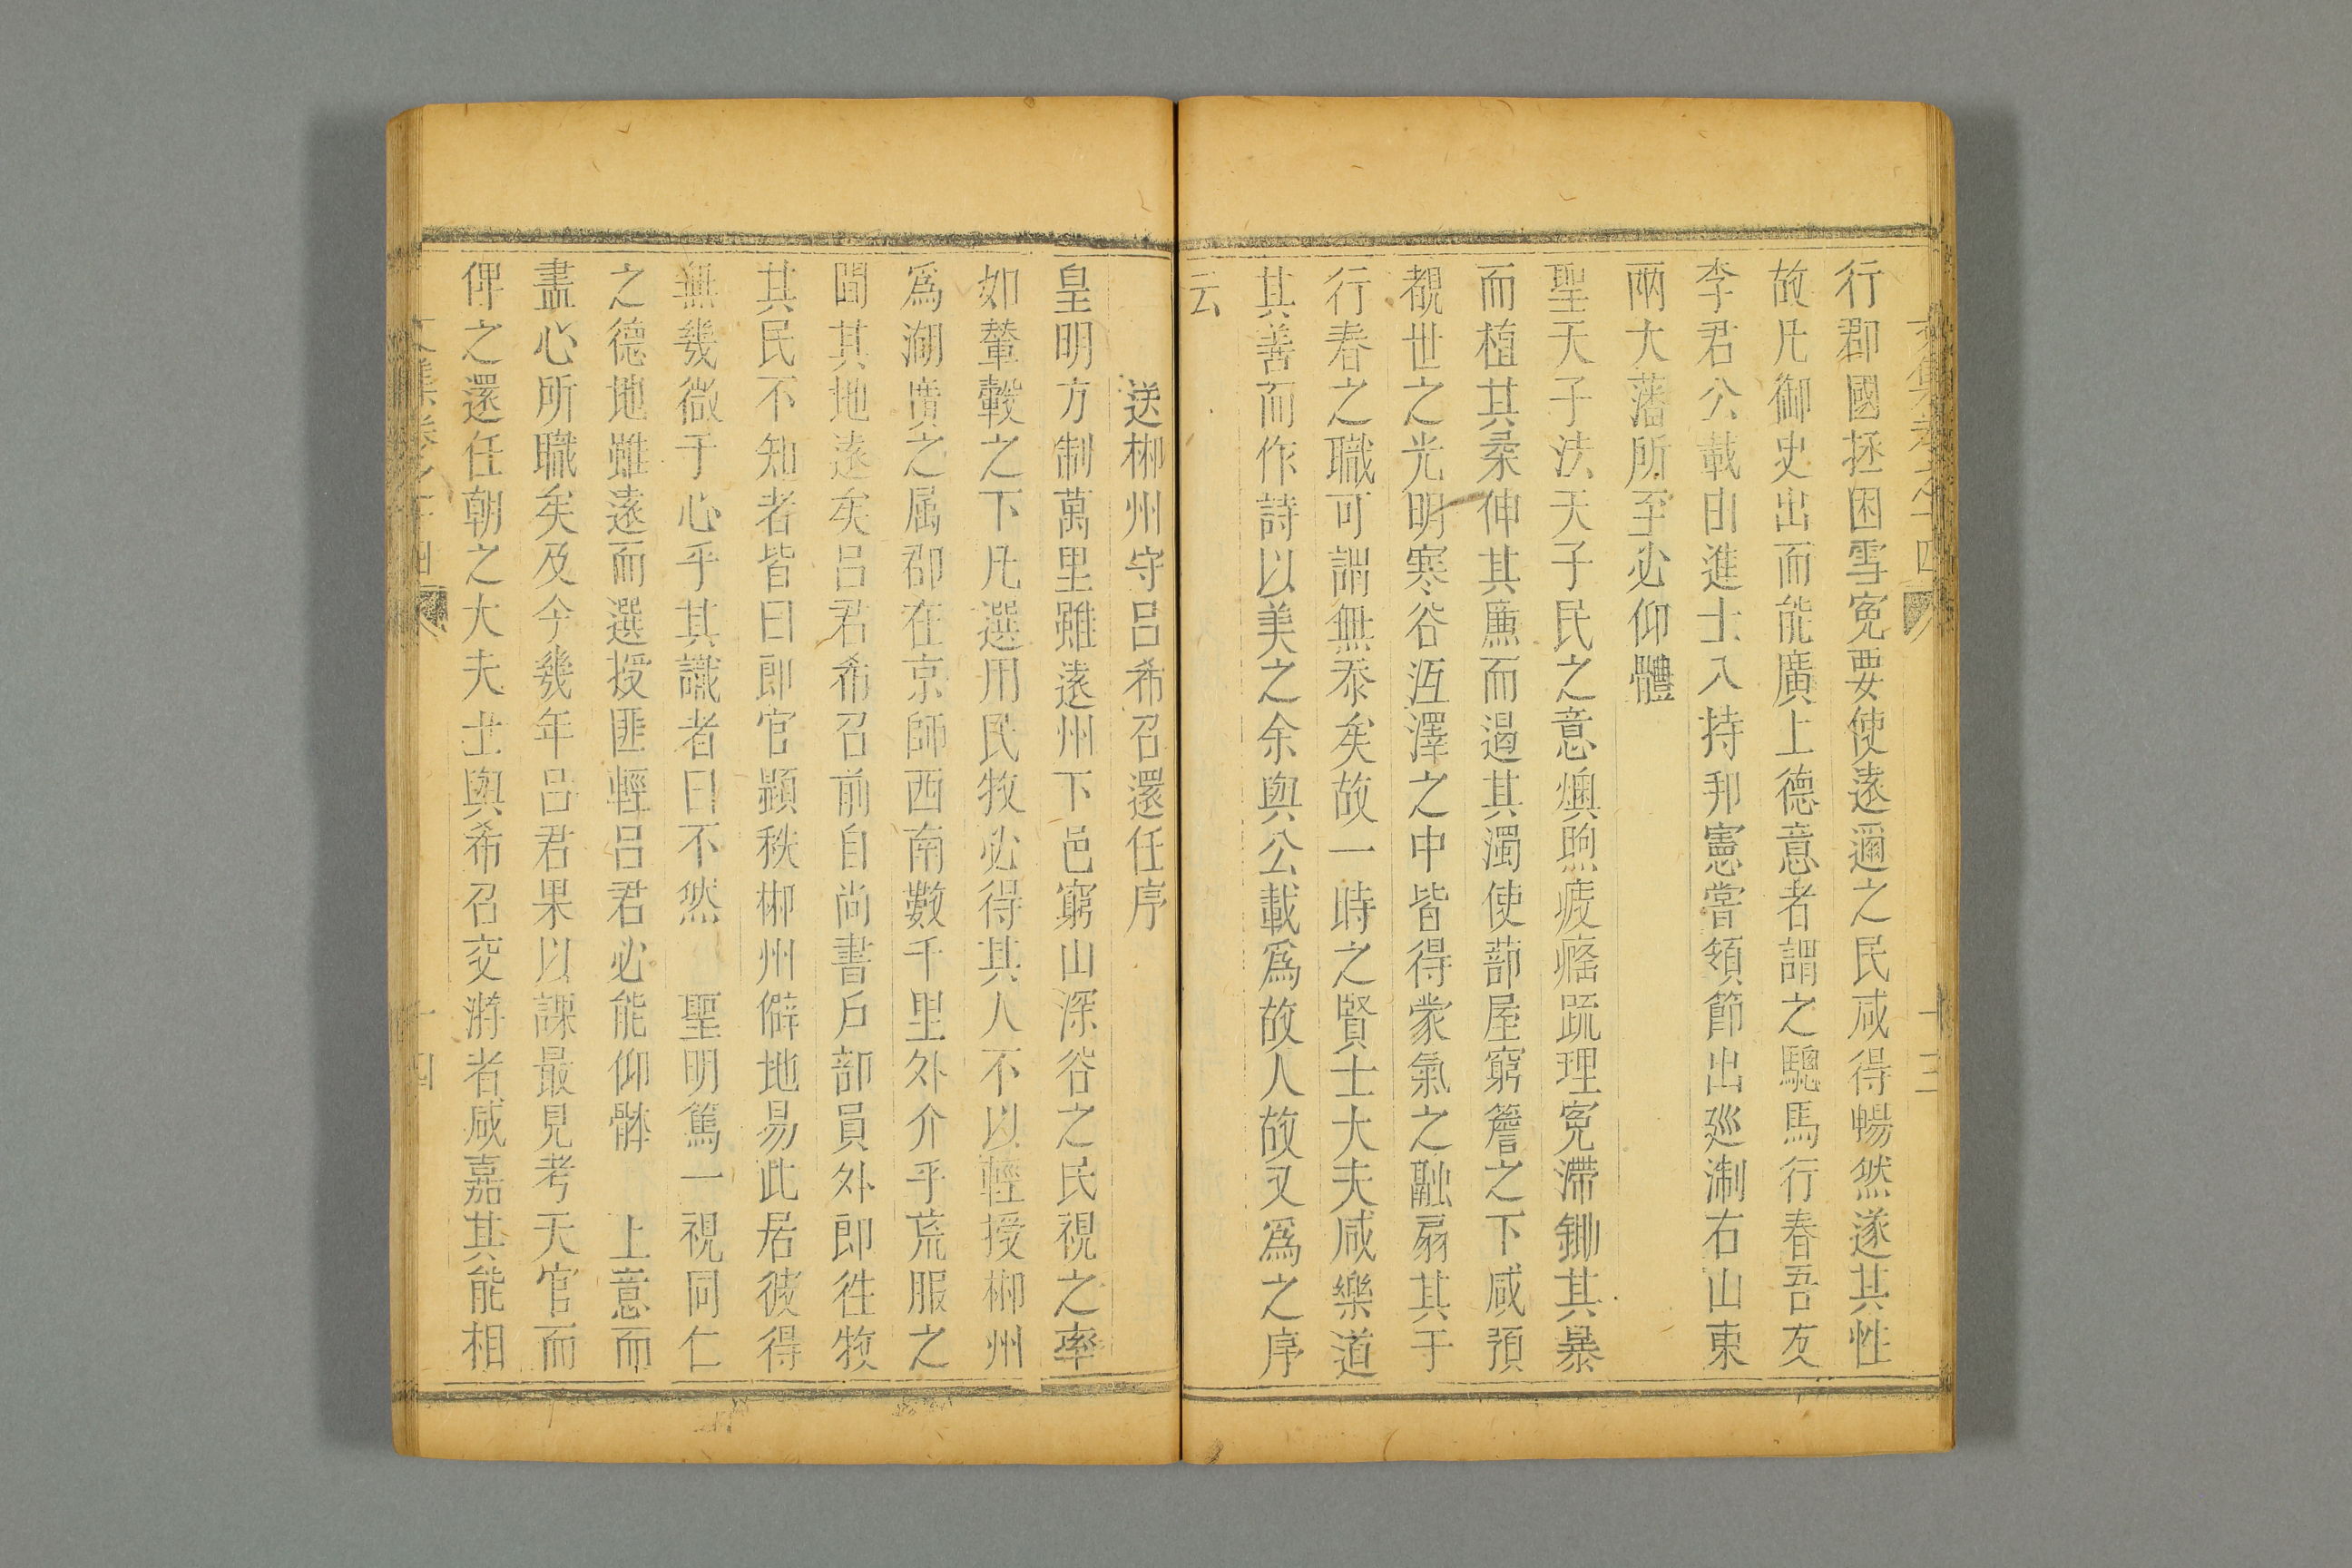 行郡國拯困雪寃要使遠邇之民咸得暢然遂其性
故凡御史出而能廣上德意者謂之驄馬行春吾友
李君公載由進士入持邦憲嘗領節出廵淛右山東
兩大藩所至必仰體
聖天子法天子民之意燠煦疲癃疏理寃滯鋤其暴
而植其柔伸其廉而遏其濁使蔀屋窮簷之下咸預
覩世之光明寒谷沍澤之中皆得蒙氣之融扇其于
行春之職可謂無忝矣故一時之賢士大夫咸樂道
其善而作詩以美之余與公載爲故人故又爲之序
云
送郴州守呂希召還任序
皇明方制萬里雖遠州下邑窮山深谷之民視之率
如輦轂之下凡選用民牧必得其人不以輕授郴州
爲湖廣之属郡在京師西南數千里外介乎荒服之
間其地遠矣呂君希召前自尚書戶部員外郎徃牧
其民不知者皆曰郎官顯秩郴州僻地易此居彼得
無幾微于心乎其識者曰不然 聖明篤一視同仁
之德地雖遠而選授匪輕呂君必能仰體 上意而
盡心所職矣及今幾年呂君果以課最見考天官而
俾之還任朝之大夫士與希召交游者咸嘉其能相
文集卷之十四
十三
文集卷之十四
十四